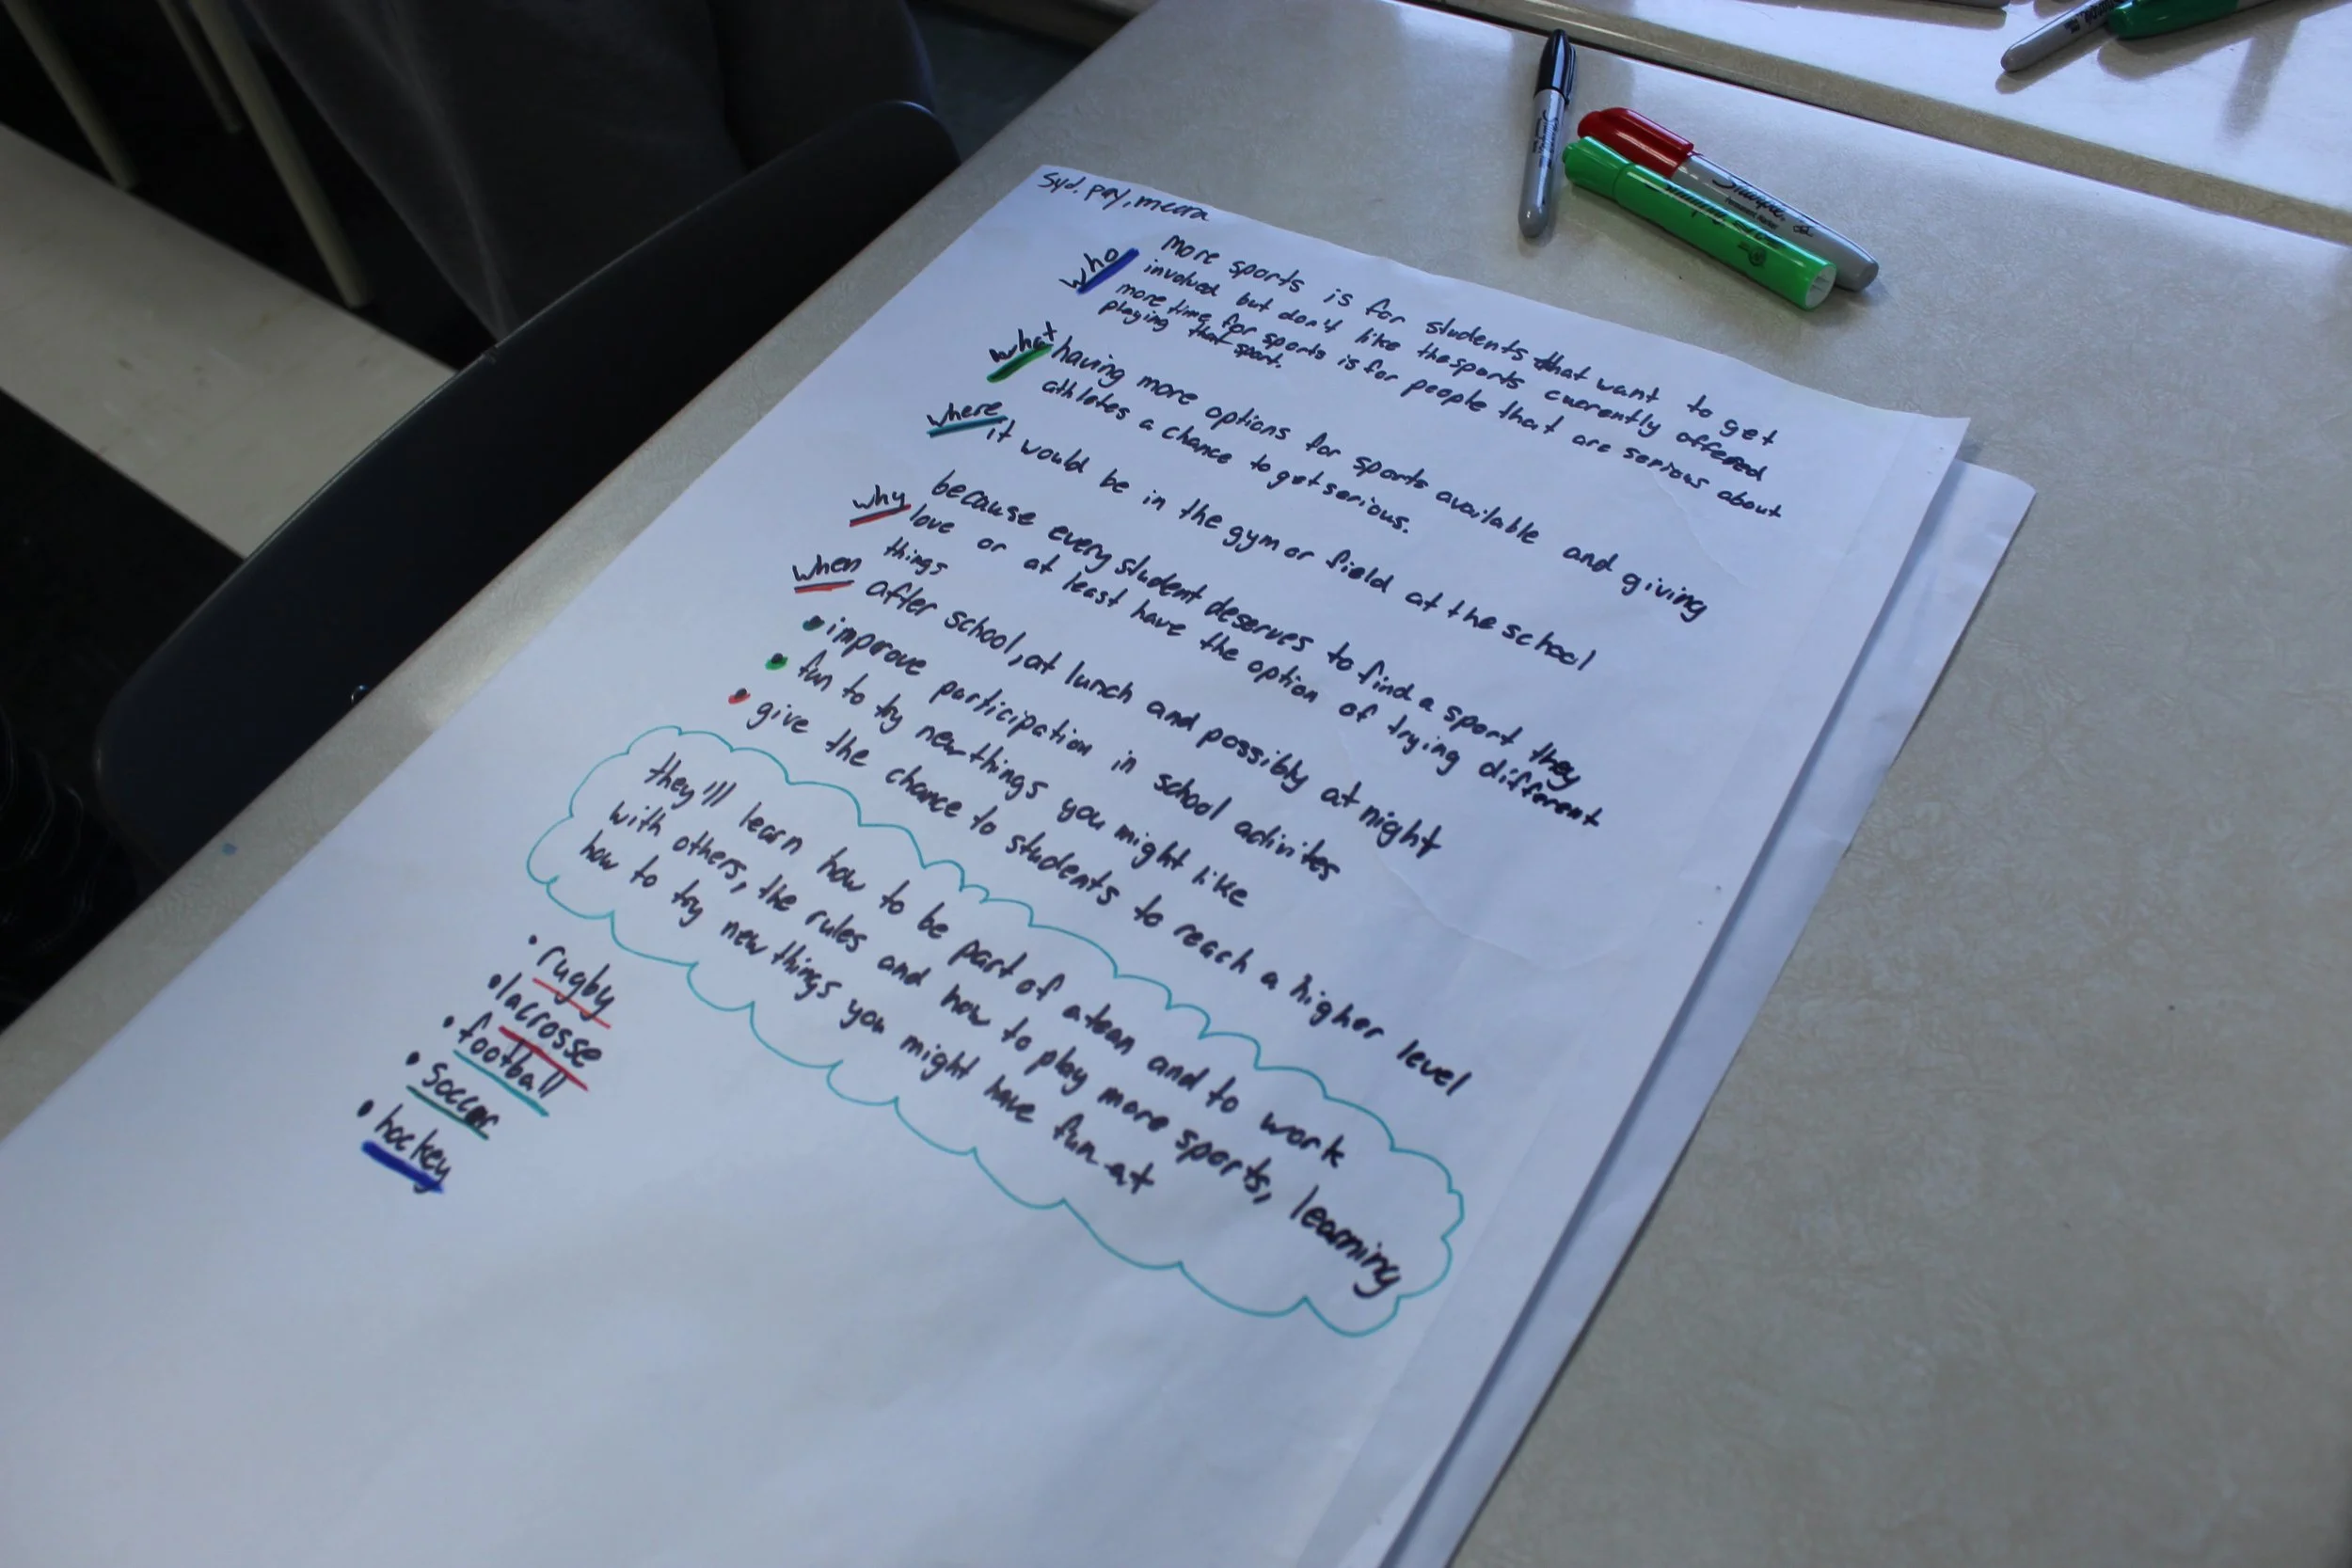 Syd, pay, meera
who more sports is for students that want to get
involved but don't like thesports currently offered
more time for sports is for people that are serious about
playing that sport.
what having more options for sports available and giving
athletes a chance to get serious.
where it would be in the gym or field at the school
why because every student deserves to find a sport they
love or at least have the option of trying different
things
when after school, at lunch and possibly at night
• improve participation in school activites
• fun to try new things you might like
• give the chance to students to reach a higher level
they'll learn how to be part of a team and to work
with others, the rules and how to play more sports, learning
how to try new things you might have fun at
• rugby
• lacrosse
• football
• soccer
• hockey
Sharpie